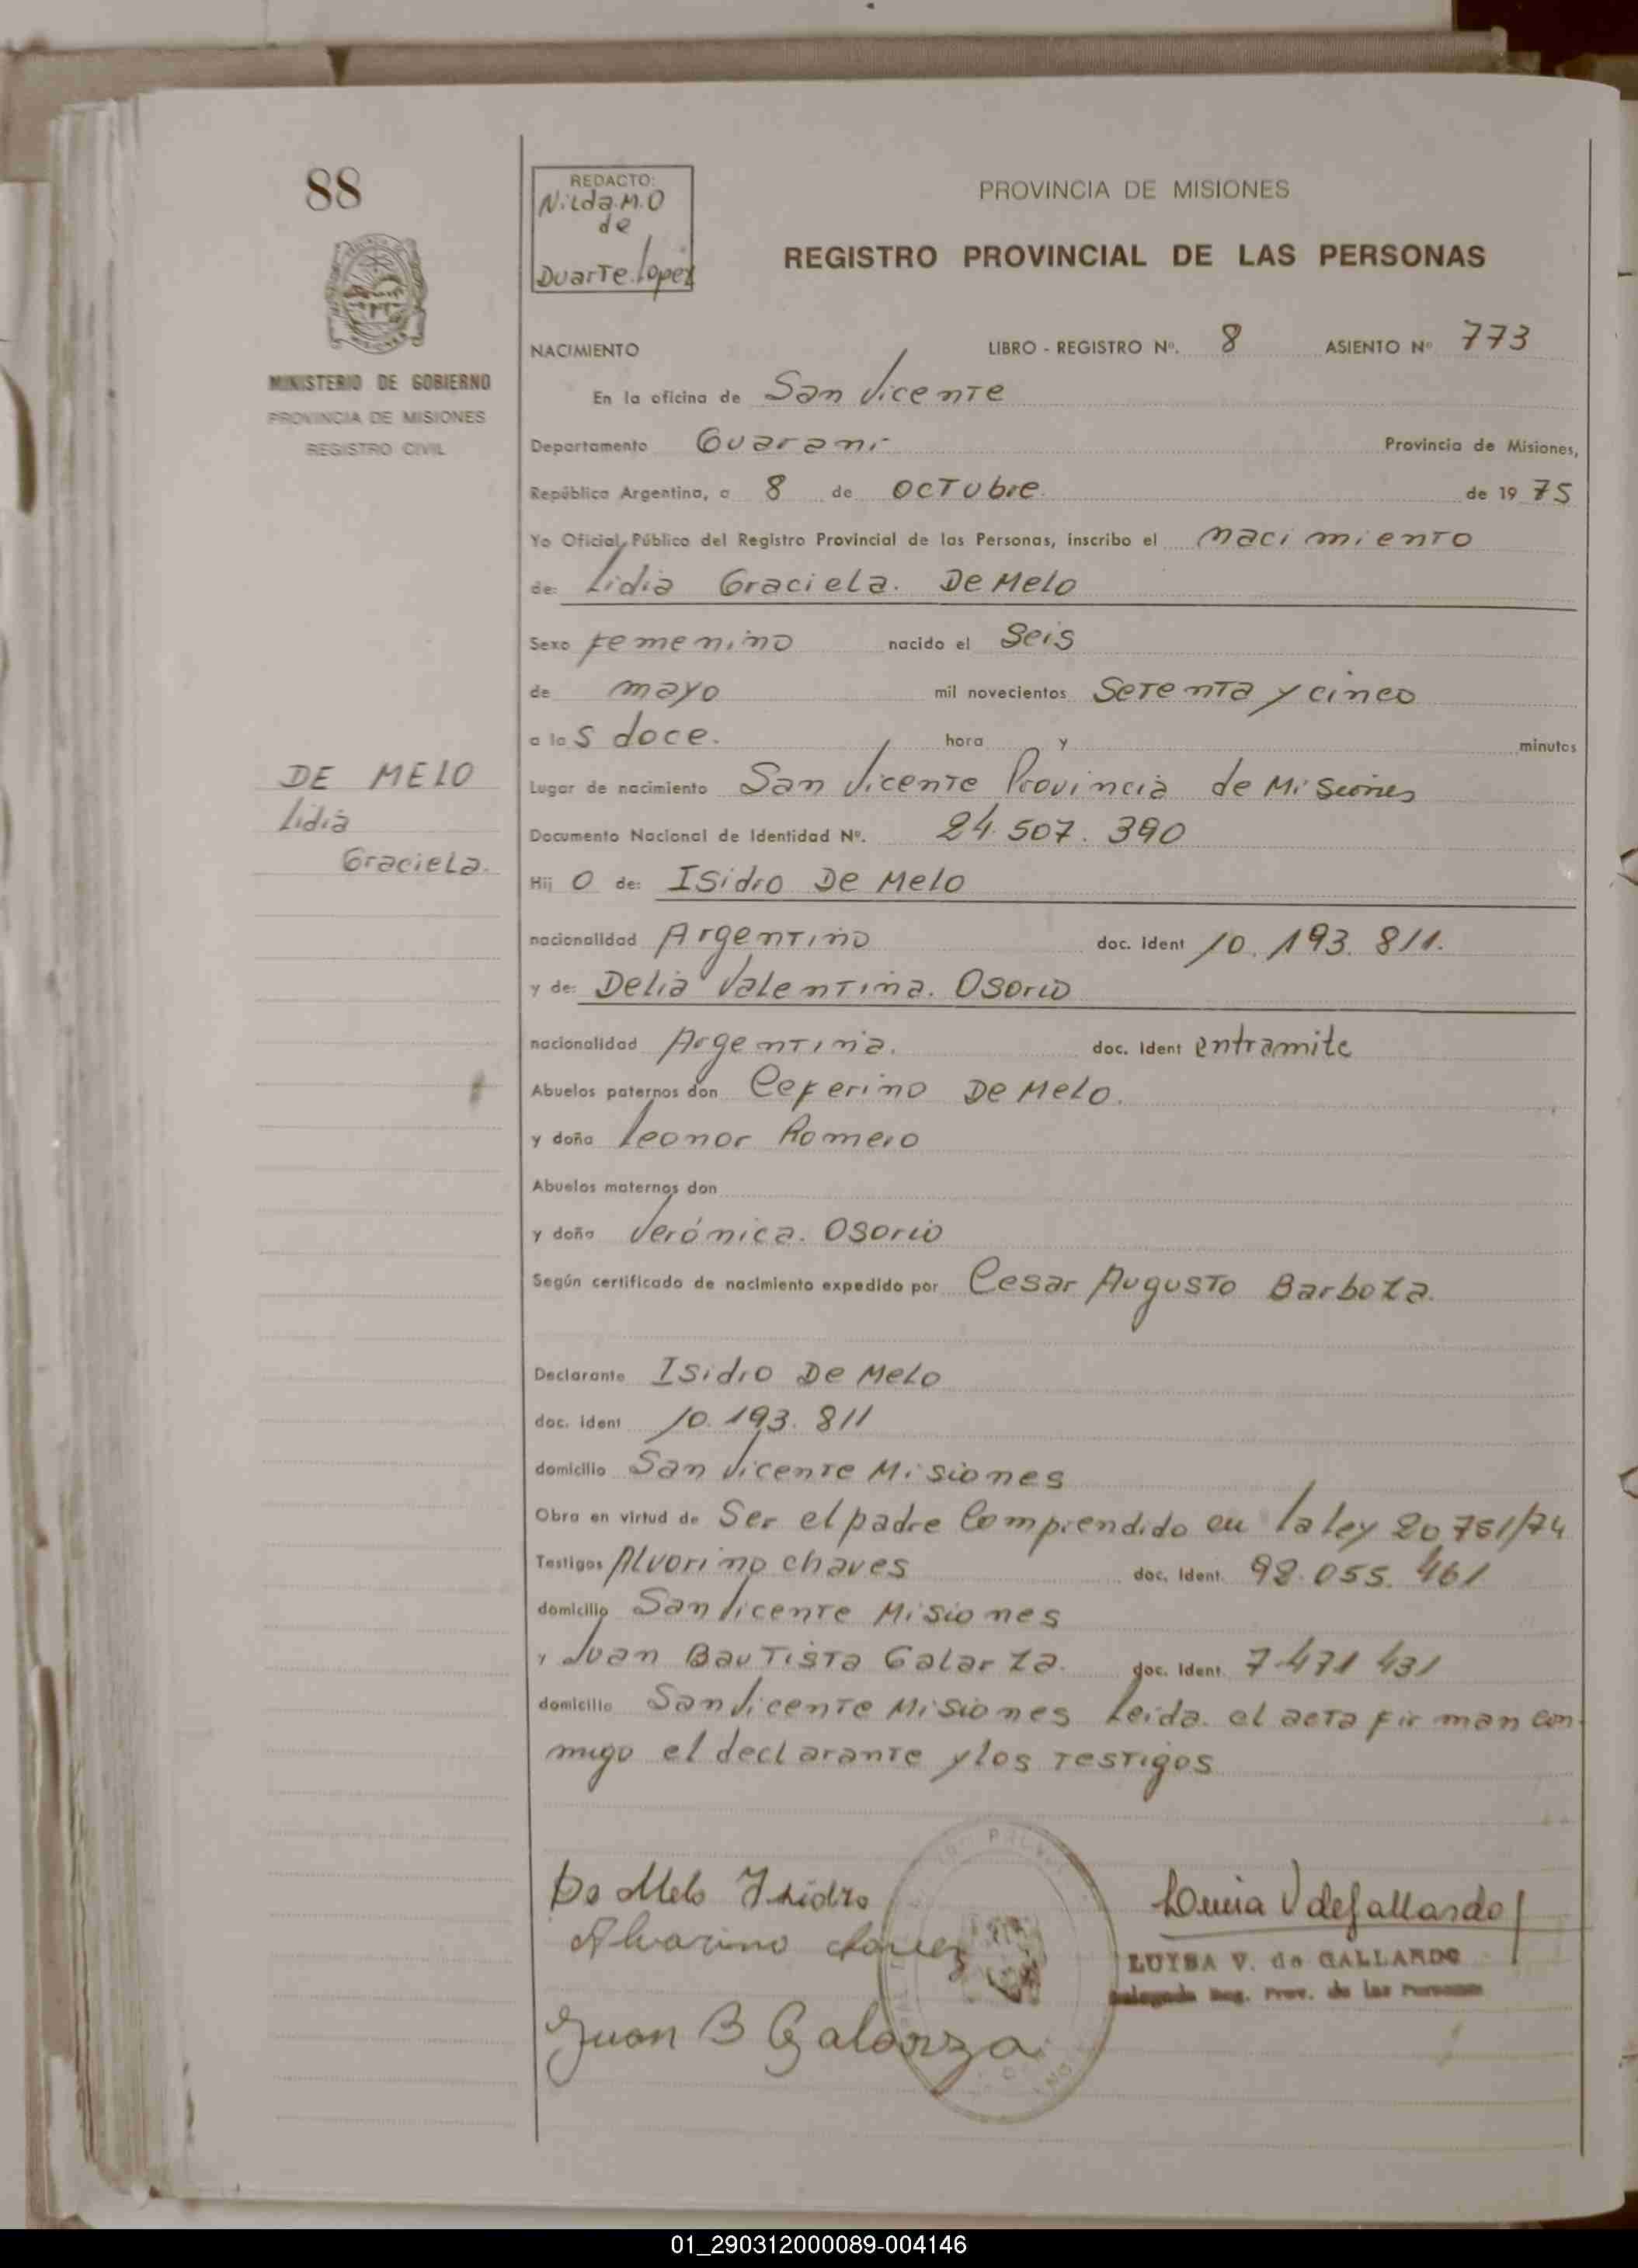 88
REDACTO:
Nilda.M.O
de
Duarte.lopez
PROVINCIA DE MISIONES
REGISTRO PROVINCIAL DE LAS PERSONAS
MISIONES
MINISTERIO DE GOBIERNO
PROVINCIA DE MISIONES
REGISTRO CIVIL
NACIMIENTO LIBRO - REGISTRO Nº. 8 ASIENTO Nº 773
En la oficina de San Vicente
Departamento Guarani Provincia de Misiones,
República Argentina, a 8 de octubre. de 19 75
Yo Oficial Público del Registro Provincial de las Personas, inscribo el nacimiento
de: Lidia Graciela. De Melo
Sexo femenino nacido el Seis
de mayo mil novecientos Setenta y cinco
a las doce. hora y minutos
DE MELO
Lidia
Graciela.
Lugar de nacimiento San Vicente Provincia de Misiones
Documento Nacional de Identidad Nº. 24.507.390
Hij o de: Isidro De Melo
nacionalidad Argentino doc. Ident 10.193.811.
y de: Delia Valentina. Osorio
nacionalidad Argentina. doc. Ident entramite
Abuelos paternos don Ceferino De Melo.
y doña Leonor Romero
Abuelos maternos don
y doña Verónica. Osorio
Según certificado de nacimiento expedido por Cesar Augusto Barboza.
Declarante Isidro De Melo
doc. ident 10.193.811
domicilio San Vicente Misiones
Obra en virtud de Ser el padre Comprendido en la ley 20,751/74
Testigos Alvorino chaves doc. Ident. 92.055.461
domicilio San Vicente Misiones
y Juan Bautista Galarza. doc. Ident. 7.471 431
domicilio San Vicente Misiones Leida. el acta firman con-
migo el declarante y los testigos
De Melo Isidro
Alvarino
Juan B Galarza
V de Gallardo
LUYSA V. de GALLARDO
Delegada Reg. Prov. de las Personas
01_290312000089-004146